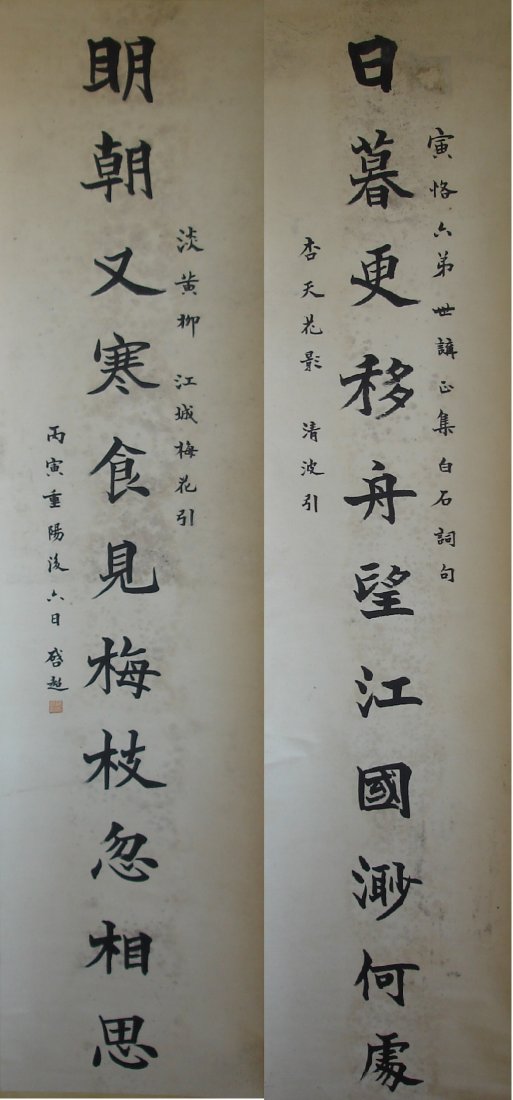 寅恪六弟世講正集白石詞句
日暮更移舟望江國渺何處
杏天花影　清波引
淡黃柳　江城梅花引
明朝又寒食見梅枝忽相思
丙寅重陽後六日　啓超